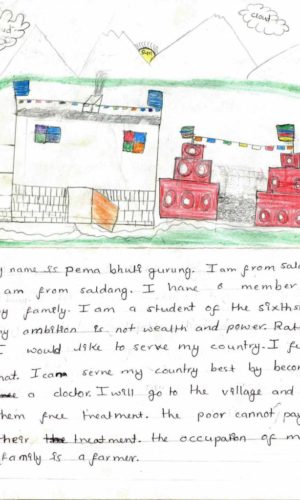 cloud
Sun
y name is pema bhuti gurung. I am from sald
am from saldang. I have 6 member
y family. I am a student of the sixths
y ambition is not wealth and power. Rat
I would like to serve my country. I fe
hat. I can serve my country best by becom
a doctor. I will go to the village and
them free treatment. the poor cannot pay
their treatment. the occupation of m
family is a farmer.